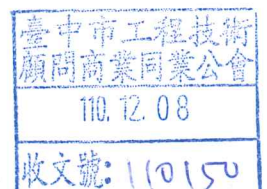 臺中市工程技術
顧問商業同業公會
110. 12. 08
收文號: 110150